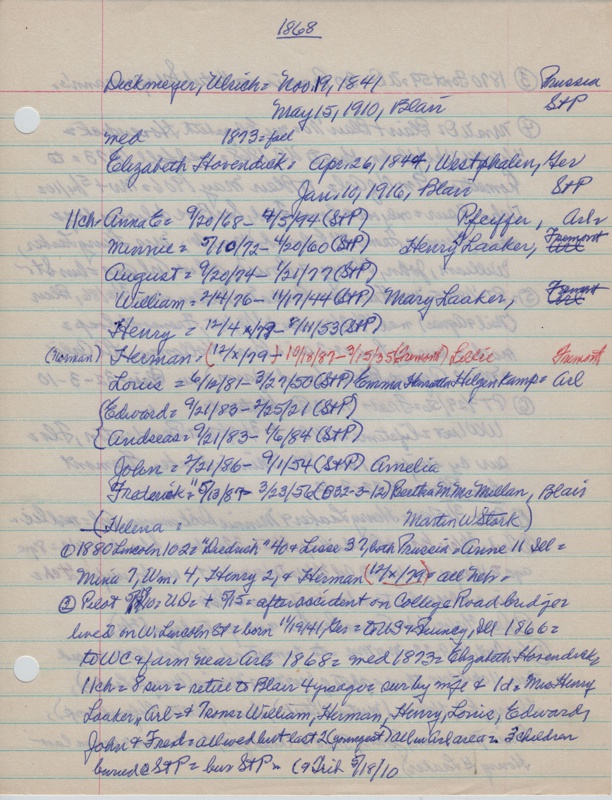 1868
Dickmeyer, Ulrich = Nov. 19, 1841 Prussia
May 15, 1910, Blair St P
med 1873 = fact
Elizabeth Hovendick = Apr. 26, 1844, Westphalen, Ger
Jan. 10, 1916, Blair St P
11 ch = Anna E = 9/20/68 - 4/5/94 (St P) Pfeiffer, Arl
Minnie = 5/10/72 - 4/20/60 (St P) Henry Laaker, Fremont
August = 9/20/74 - 1/21/77 (St P)
William = 2/4/76 - 11/17/44 (St P) Mary Laaker,
Henry = 12/4 x/79 - 8/11/53 (St P)
(Norman) Herman = (12/x/79) + 10/18/87 - 3/15/35 (Fremont) Lillie Fremont
Louis = 6/12/81 - 3/27/50 (St P) Emma Henrietta Hilgenkamp = Arl
Edward = 9/21/83 - 2/25/21 (St P)
Andreas = 9/21/83 - 1/6/84 (St P)
John = 2/21/86 - 9/1/54 (St P) Amelia
Frederick = 5/13/87 - 3/23/56 (B32-3-12) Bertha M McMillan, Blair
(Helena = Martin W Stork)
① 1880 Lincoln 102 = "Diedrich" 40 & Liese 37, both Prussia = Anne 11 Ill =
Mina 7, Wm. 4, Henry 2, & Herman (12/x/79) = all Neb =
② Pilot = UD = + 5/15 = after accident on College Road bridge =
lived on W. Lincoln St = born 11/19/41, Ger = to US & Quincy, Ill 1866 =
to WC & farm near Arl 1868 = med 1873 = Elizabeth Hovendick,
11 ch = 8 sur = retire to Blair 4 yrs ago = sur by wife & 1 d = Mrs Henry
Laaker, Arl = & 7 sons = William, Herman, Henry, Louis, Edward,
John & Fred = all wed but last 2 (youngest) all in Arl area = 3 children
buried @ St P = bur St P = (@ Trib 5/18/10